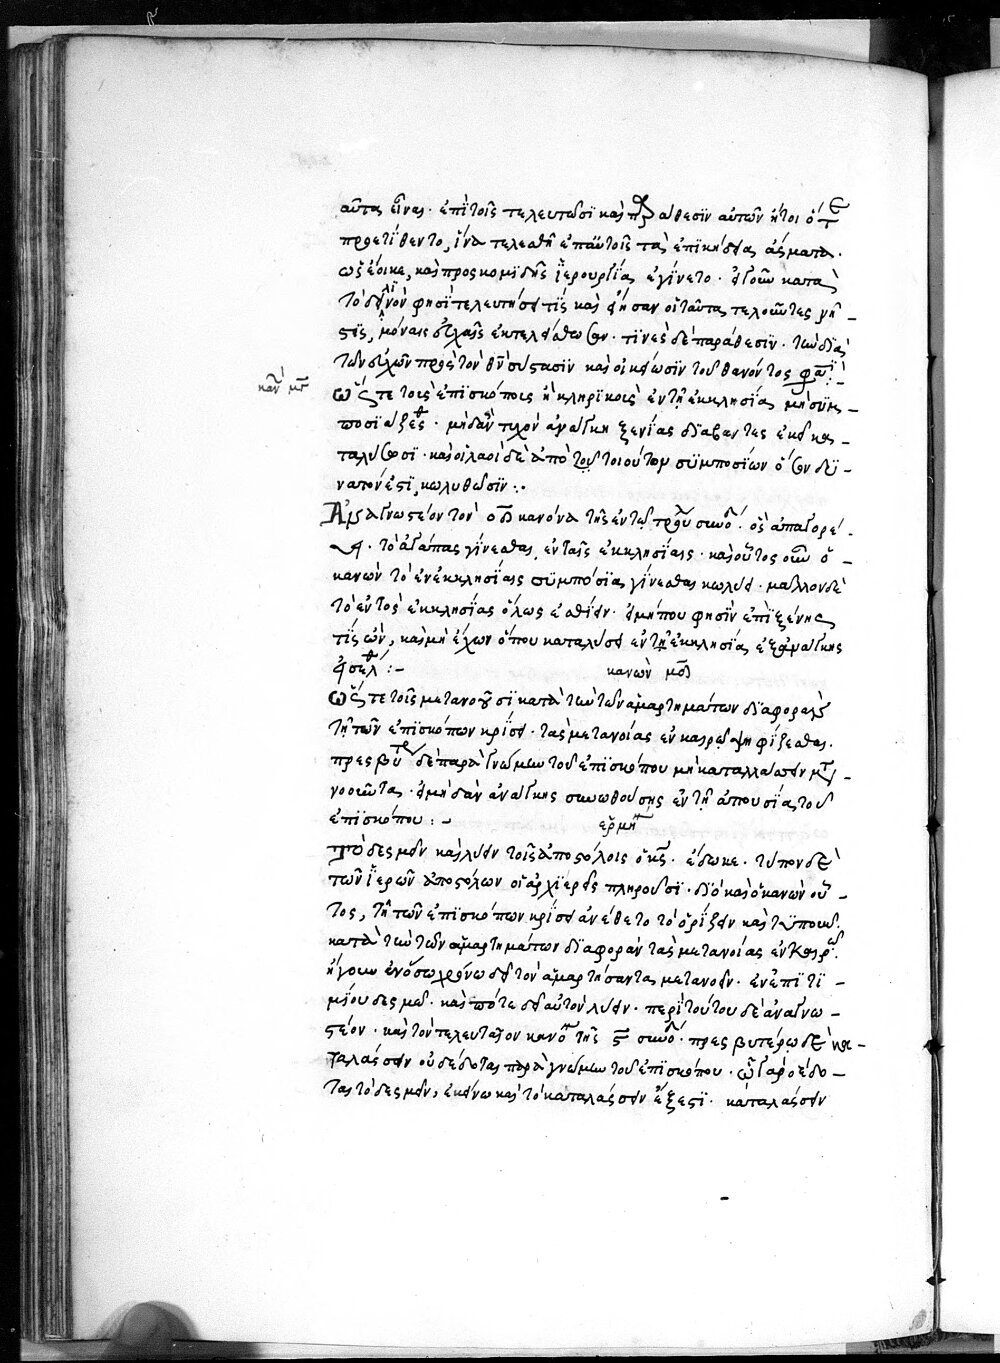 αὗται εἶναι · ἐπὶ τοῖς τελευτῶσι καὶ παραθεσιν αὐτῶν ἤτοι ὅτε
προετίθεντο, ἵνα τελεσθῇ ἐπ' αὐτοῖς τὰ ἐπικήδεια ἄσματα ·
ὡς ἔοικε, καὶ προσκομιδῆς ἱερουργία ἐγίνετο · εἰ γοῦν κατὰ
τὸ δειλινόν φησι τελευτήσει τίς καὶ εἰσὶν οἱ ταῦτα τελοῦντες νή-
στεις, μόναις εὐχαῖς ἐκτελείσθωσαν · τινὲς δὲ παράθεσιν · τὴν διὰ
τῶν εὐχῶν πρὸς τὸν θν σύστασιν καὶ οἰκείωσιν τοῦ θανόντος φασί :-
καν μγ
ὥστε τοὺς ἐπισκόπους ἢ κληρικοὺς ἐν τῇ ἐκκλησίᾳ μὴ συμ-
ποσιάζειν · μὴ δ' ἂν τυχὸν ἀνάγκῃ ξενίας διαβαντες ἐκεῖ κα-
ταλύωσι · καὶ οἱ λαοὶ δὲ ἀπὸ τοῦ τοιούτου συμποσίων ὅσον δυ-
νατόν ἐστι, κωλυθῶσιν :·
Ἀναγνωστέον τὸν οδ κανόνα τῆς ἐν τῷ τρούλλῳ συνόδου · ὃς ἀπαγορεύ-
ει · τὸ ἀγάπας γίνεσθαι ἐν ταῖς ἐκκλησίαις · καὶ οὗτος οὖν ὁ -
κανὼν τὸ ἐν ἐκκλησίαις συμπόσια γίνεσθαι κωλύει · μᾶλλον δὲ
τὸ ἐντὸς ἐκκλησίας ὅλως ἐσθίειν · εἰ μή που φησὶν ἐπὶ ξένης
τίς ὢν, καὶ μὴ ἔχων ὅπου καταλύσει ἐν τῇ ἐκκλησίᾳ ἐξ ἀνάγκης
εἰσέλθῃ :- κανὼν μδ
ὥστε τοῖς μετανοοῦσι κατὰ τὴν τῶν ἁμαρτημάτων διαφορὰν
τῇ τῶν ἐπισκόπων κρίσει · τὰς μετανοίας ἐν καιρῷ ψηφίζεσθαι ·
πρεσβύτερον δὲ παρὰ γνώμην τοῦ ἐπισκόπου μὴ καταλλάσσειν μετα-
νοοῦντα · εἰ μὴ δ' ἂν ἀνάγκης συνωθούσης ἐν τῇ ἀπουσίᾳ τοῦ
ἐπισκόπου :- ἑρμη
Τὸ δεσμεῖν καὶ λύειν τοῖς ἀποστόλοις ὁ κς · ἔδωκε · τύπον δὲ
τῶν ἱερῶν ἀποστόλων οἱ ἀρχιερεῖς πληροῦσι · διὸ καὶ ὁ κανὼν οὗ-
τος, τῇ τῶν ἐπισκόπων κρίσει ἀνέθετο τὸ ὁρίζειν καὶ τυποῦν
κατὰ τὴν τῶν ἁμαρτημάτων διαφορὰν τὰς μετανοίας ἐν καιρῷ ·
ἤγουν ἐν ὅσῳ χρόνῳ δεῖ τὸν ἁμαρτήσαντα μετανοεῖν · ἐν ἐπιτι-
μίου δεσμῷ · καὶ πότε δεῖ αὐτὸν λύειν · περὶ τούτου δὲ ἀναγνω-
στέον · καὶ τὸν τελευταῖον κανόνα τῆς ϛ συνόδου · πρεσβυτέρῳ δὲ κα-
ταλάσσειν οὐ δέδοται παρὰ γνώμην τοῦ ἐπισκόπου · ᾧ γὰρ δέδο-
ται τὸ δεσμεῖν, ἐκείνῳ καὶ τὸ καταλάσσειν ἔξεστι · καταλάσσειν